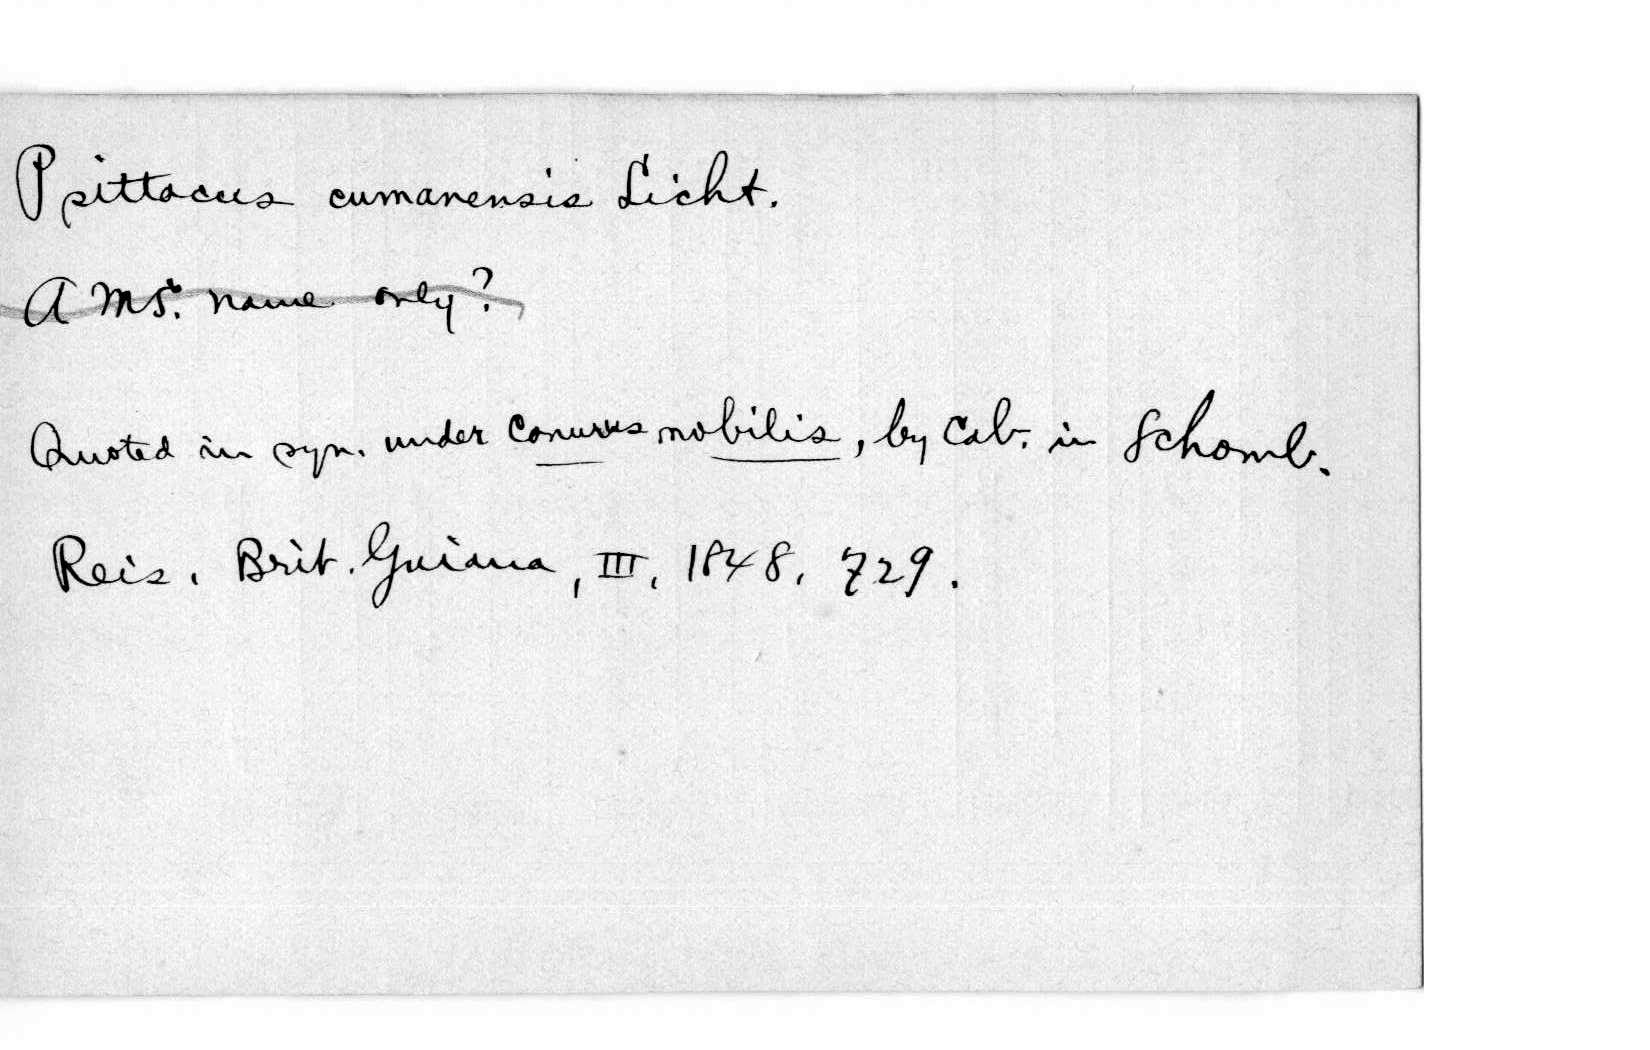 Psittacus cumanensis Licht.
A MS. name only?
Quoted in syn. under Conurus nobilis, by Cab. in Schomb.
Reis. Brit. Guiana, III, 1848, 729.